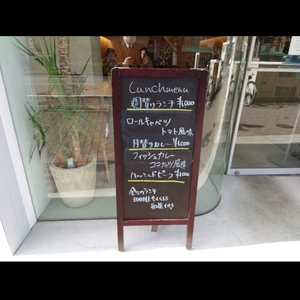 Lunch menu
週替りランチ ¥1,000
ロールキャベツ
トマト風味
月替りカレー ¥1,000
フィッシュカレー
ココナッツ風味
ハッシュドビーフ ¥1,000